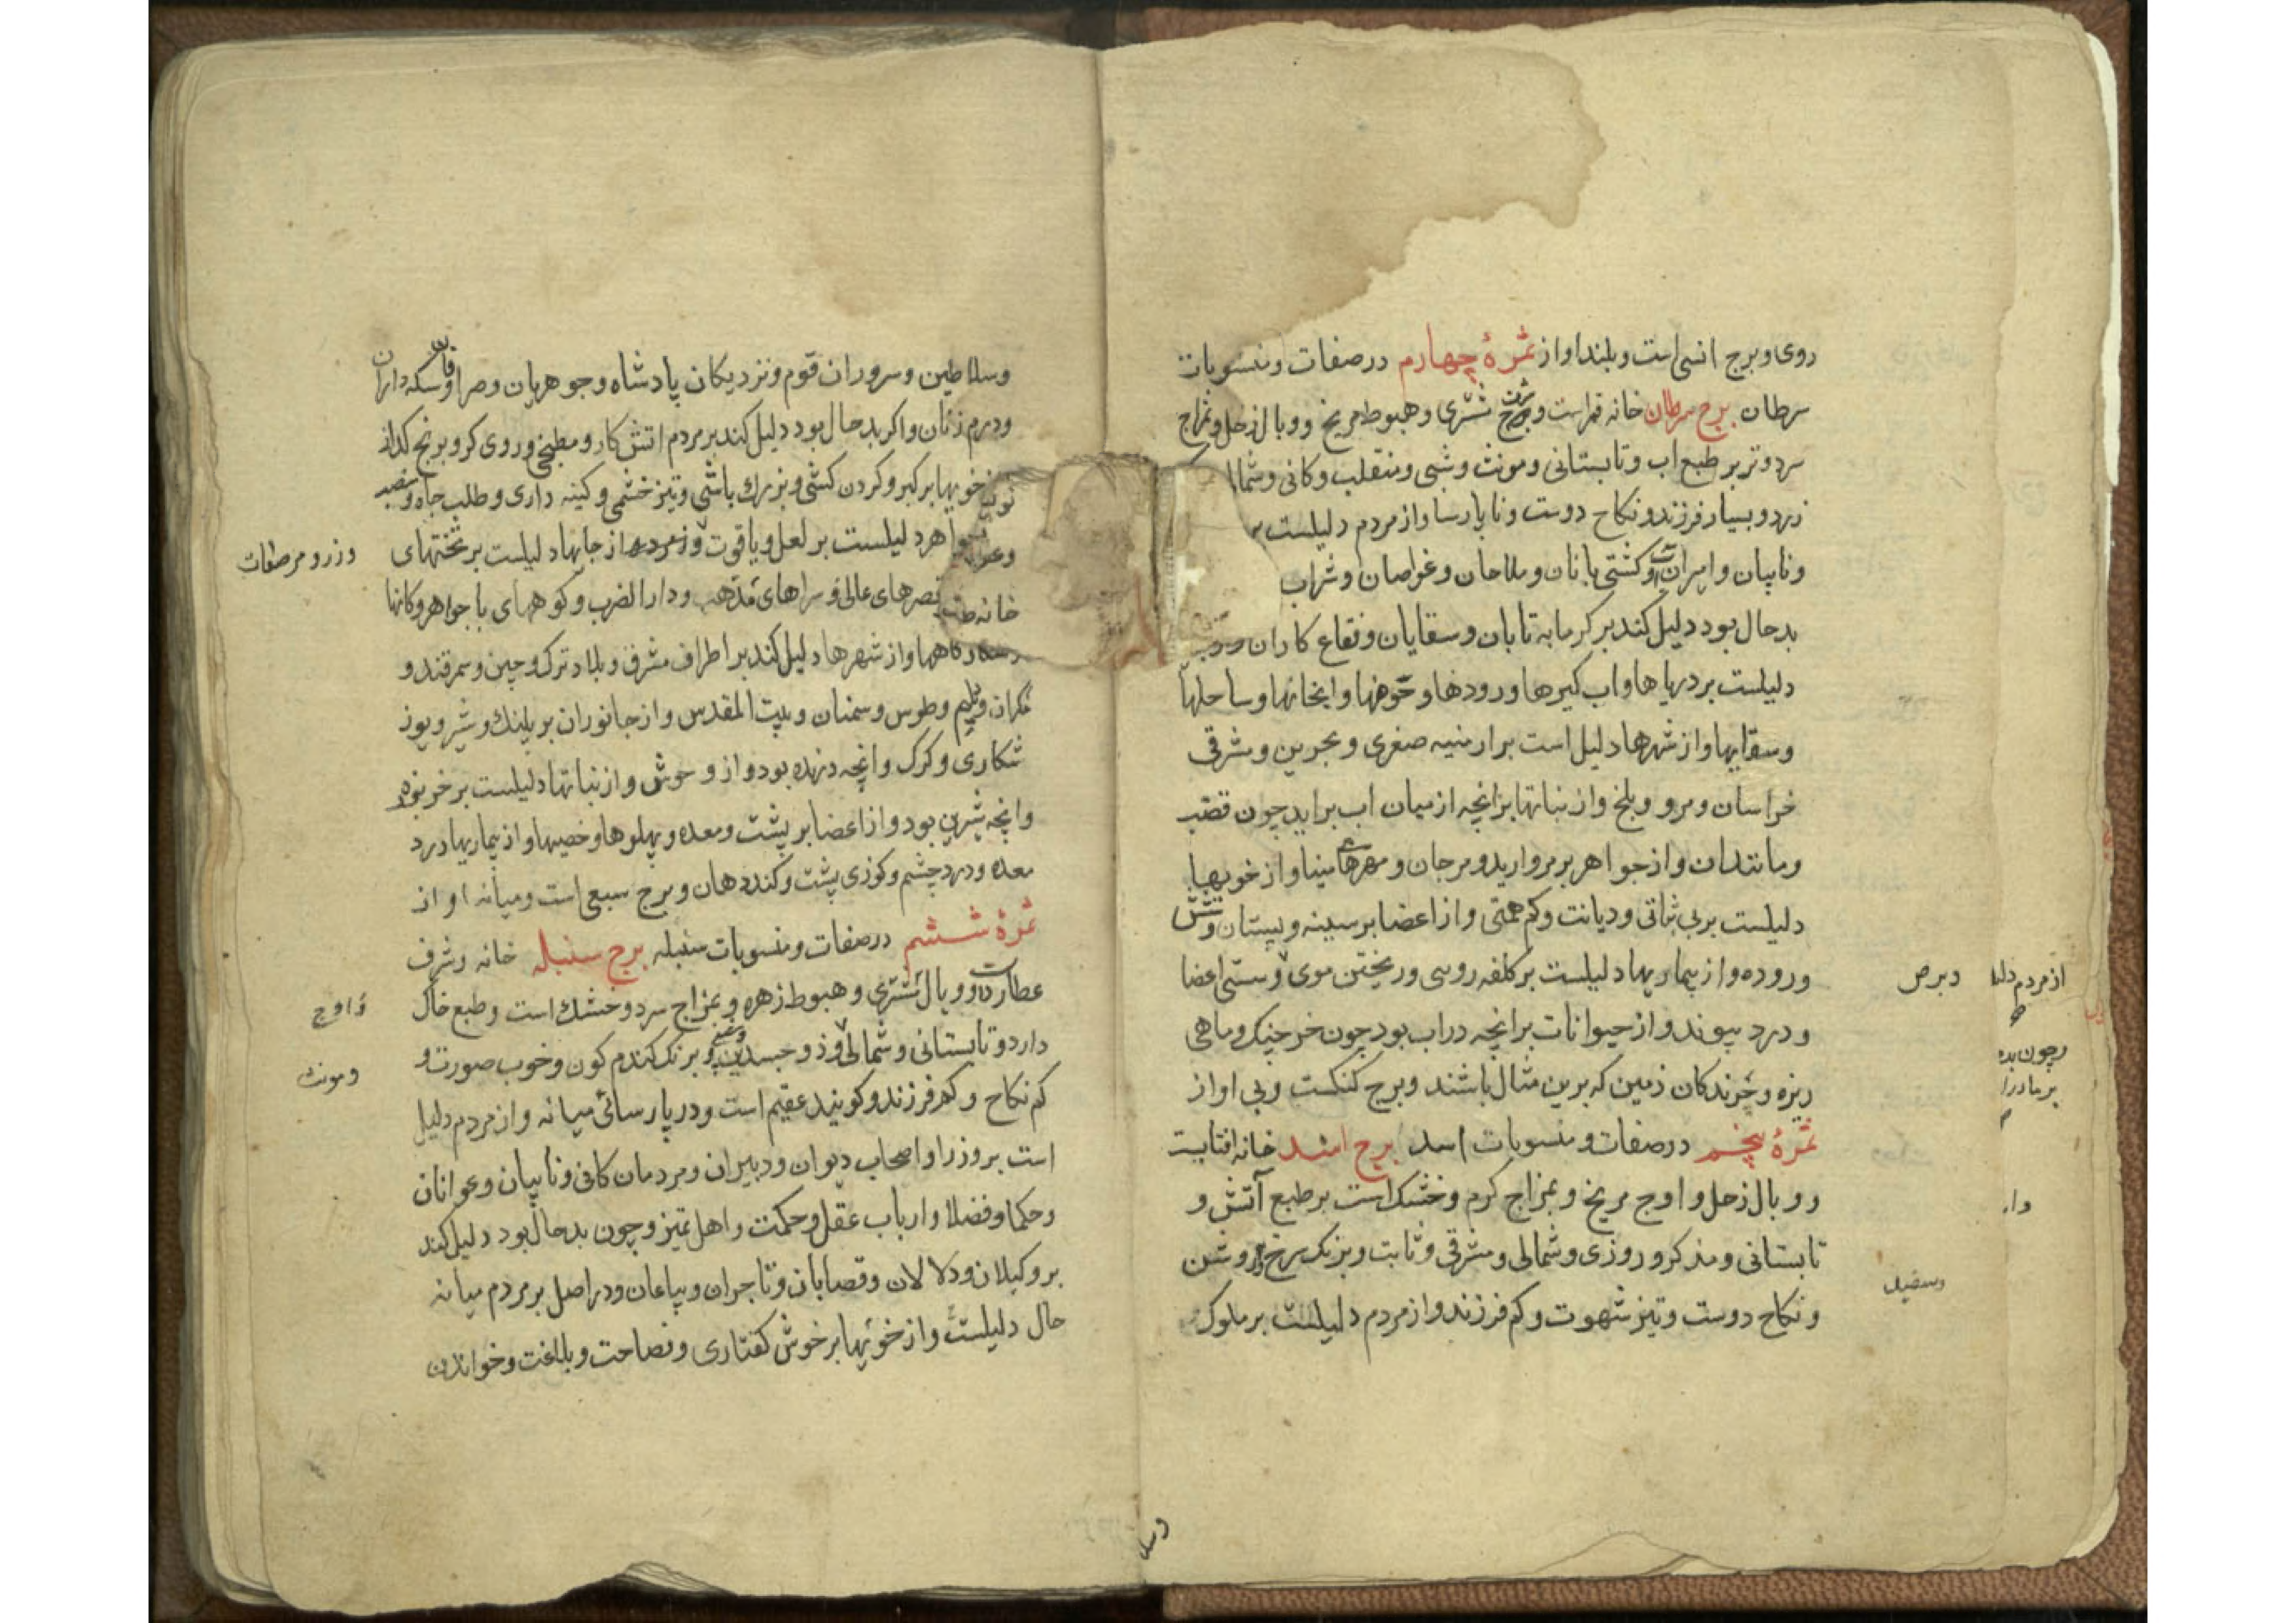 روی و برج انسی است و بلند اواز ثمرهٔ چهارم در صفات و منسوبات
سرطان برج سرطان خانه قمر است و شرف مشتری و هبوط مریخ و وبال زحل و بمزاج
سرد و تر بر طبع اب و تابستانی و مونث و شبی و منقلب و کانی و شما
زرد و بسیار فرزند و نکاح دوست و ناپارسا و از مردم دلیلست بر
و نایبان و امیران و کشتی بانان و ملاحان و غواصان و شراب
بدحال بود دلیل کند بر کرمابه تابان و سقایان و فقاع کاران و
دلیلست بر دریاها و اب کیرها و رودها و حوضها و ابخانها و ساحلها
و سقایها و از شهرها دلیل است بر ارمنیه صغری و بحرین و مشرقی
خراسان و مرو و بلخ و از نباتها بر انچه از میان اب براید چون قصب
و مانند ان و از جواهر بر مروارید و مرجان و مهرهای مینا و از خویها
دلیلست بر بی ثباتی و دیانت و کم همتی و از اعضا بر سینه و پستان و شش
و روده و از بیماریها دلیلست بر کلفه روی و ریختن موی و سستی اعضا
و برص
و درد پیوند و از حیوانات بر انچه در اب بود چون خرچنک و ماهی
ریزه و خزندکان زمین که برین مثال باشند و برج کنکست و بی اواز
ثمرهٔ پنجم در صفات و منسوبات اسد برج اسد خانه افتابست
و وبال زحل و اوج مریخ و بمزاج کرم و خشک است بر طبع آتش و
تابستانی و مذکر و روزی و شمالی و مشرقی و ثابت و برنک سرخ روشن
و نکاح دوست و تیز شهوت و کم فرزند و از مردم دلیلست بر ملوک
از مردم
و چون بد
بر مادر
وسلا
و سلاطین و سروران قوم و نزدیکان پادشاه و جوهریان و صرافان و سکه داران
و درم زنان و اکر بدحال بود دلیل کند بر مردم اتش کار و مطبخی و روی کر و برنج کداز
خویها بر کبر و کردن کشی و بزرک باشی و تیز خشمی و کینه داری و طلب جاه و منصب
جواهر دلیلست بر لعل و یاقوت و زمرد و از جایها دلیلست بر تختهای
و زر و مرصعات
خانه قصرهای عالی و سراهای مذهب و دارالضرب و کوههای با جواهر و کانها
کاهها و از شهرها دلیل کند بر اطراف مشرق و بلاد ترک و چین و سمرقند و
و طوس و سمنان و بیت المقدس و از جانوران بر پلنک و شیر و یوز
شکاری و کرک و انچه درنده بود و از وحوش و از نباتها دلیلست بر خربوزه
و انچه شیرین بود و از اعضا بر پشت و معده و پهلوها و خصیها و از بیماریها درد
معده و درد چشم و کوژی پشت و کند دهان و برج سبعی است و میانه اواز
ثمرهٔ ششم در صفات و منسوبات سنبله برج سنبله خانه و شرف
عطارد است و وبال مشتری و هبوط زهره و بمزاج سرد و خشک است و طبع خاک
و اوج
دارد و تابستانی و شمالی و ذو جسدین و برنک کندم کون و خوب صورت و
و مونث
کم نکاح و کم فرزند و کویند عقیم است و در پارسائی میانه و از مردم دلیل
است بر وزرا و اصحاب دیوان و دبیران و مردمان کافی و نایبان و عوانان
و حکما و فضلا و ارباب عقل و حکمت و اهل تمیز و چون بدحال بود دلیل کند
بر وکیلان و دلالان و قصابان و تاجران و بیاعان و در اصل بر مردم میانه
حال دلیلست و از خویها بر خوش کفتاری و فصاحت و بلاغت و خواندن